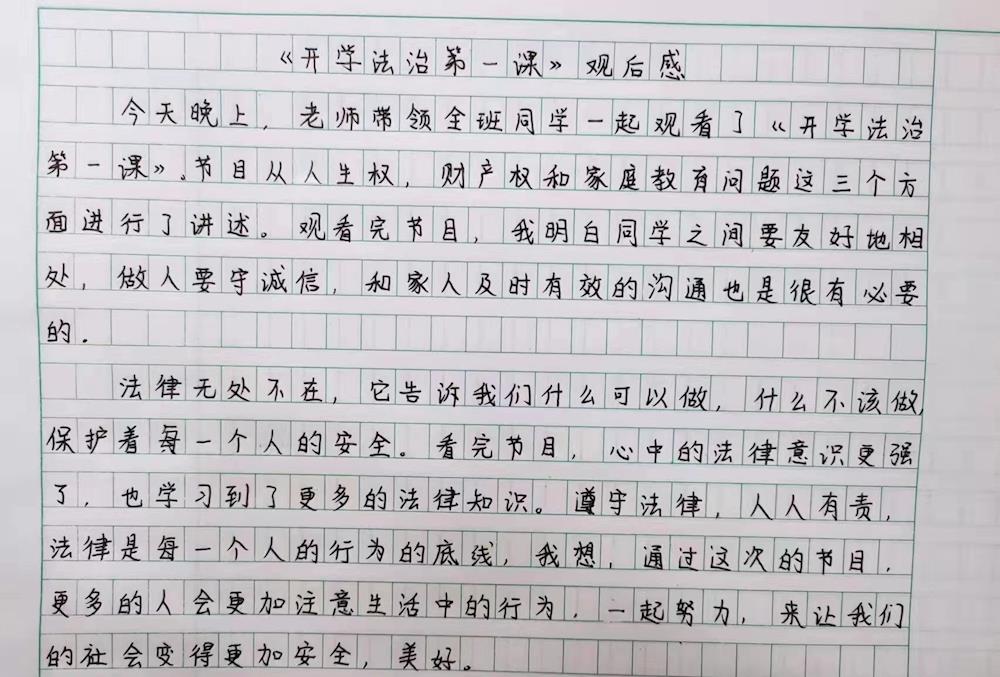 《开学法治第一课》观后感
今天晚上，老师带领全班同学一起观看了《开学法治
第一课》。节目从人生权，财产权和家庭教育问题这三个方
面进行了讲述。观看完节目，我明白同学之间要友好地相
处，做人要守诚信，和家人及时有效的沟通也是很有必要
的.
法律无处不在，它告诉我们什么可以做，什么不该做，
保护着每一个人的安全。看完节目，心中的法律意识更强
了，也学习到了更多的法律知识。遵守法律，人人有责，
法律是每一个人的行为的底线，我想，通过这次的节目，
更多的人会更加注意生活中的行为，一起努力，来让我们
的社会变得更加安全，美好。